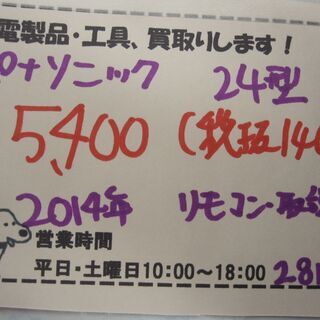 電製品・工具、買取りします！
パナソニック 24型
5,400 (税抜
2014年 リモコン・取
営業時間
平日・土曜日10:00～18:00 28